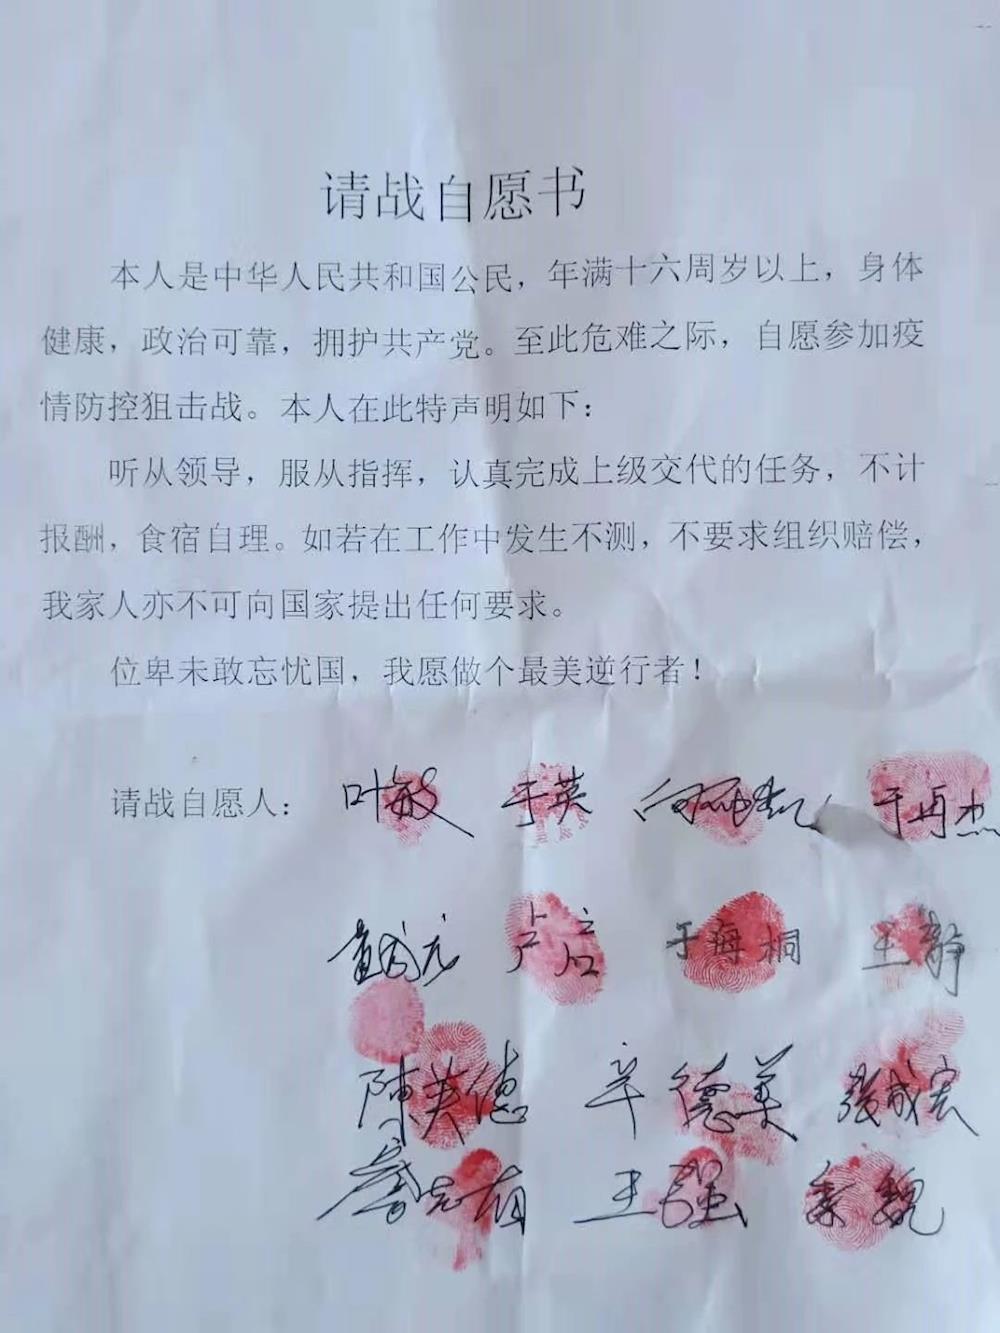 请战自愿书
本人是中华人民共和国公民，年满十六周岁以上，身体
健康，政治可靠，拥护共产党。至此危难之际，自愿参加疫
情防控狙击战。本人在此特声明如下：
听从领导，服从指挥，认真完成上级交代的任务，不计
报酬，食宿自理。如若在工作中发生不测，不要求组织赔偿，
我家人亦不可向国家提出任何要求。
位卑未敢忘忧国，我愿做个最美逆行者！
请战自愿人： 叶敏 于英 于再杰
于海桐 王静
陈英德 辛德美 张成宏
王强 秦魏